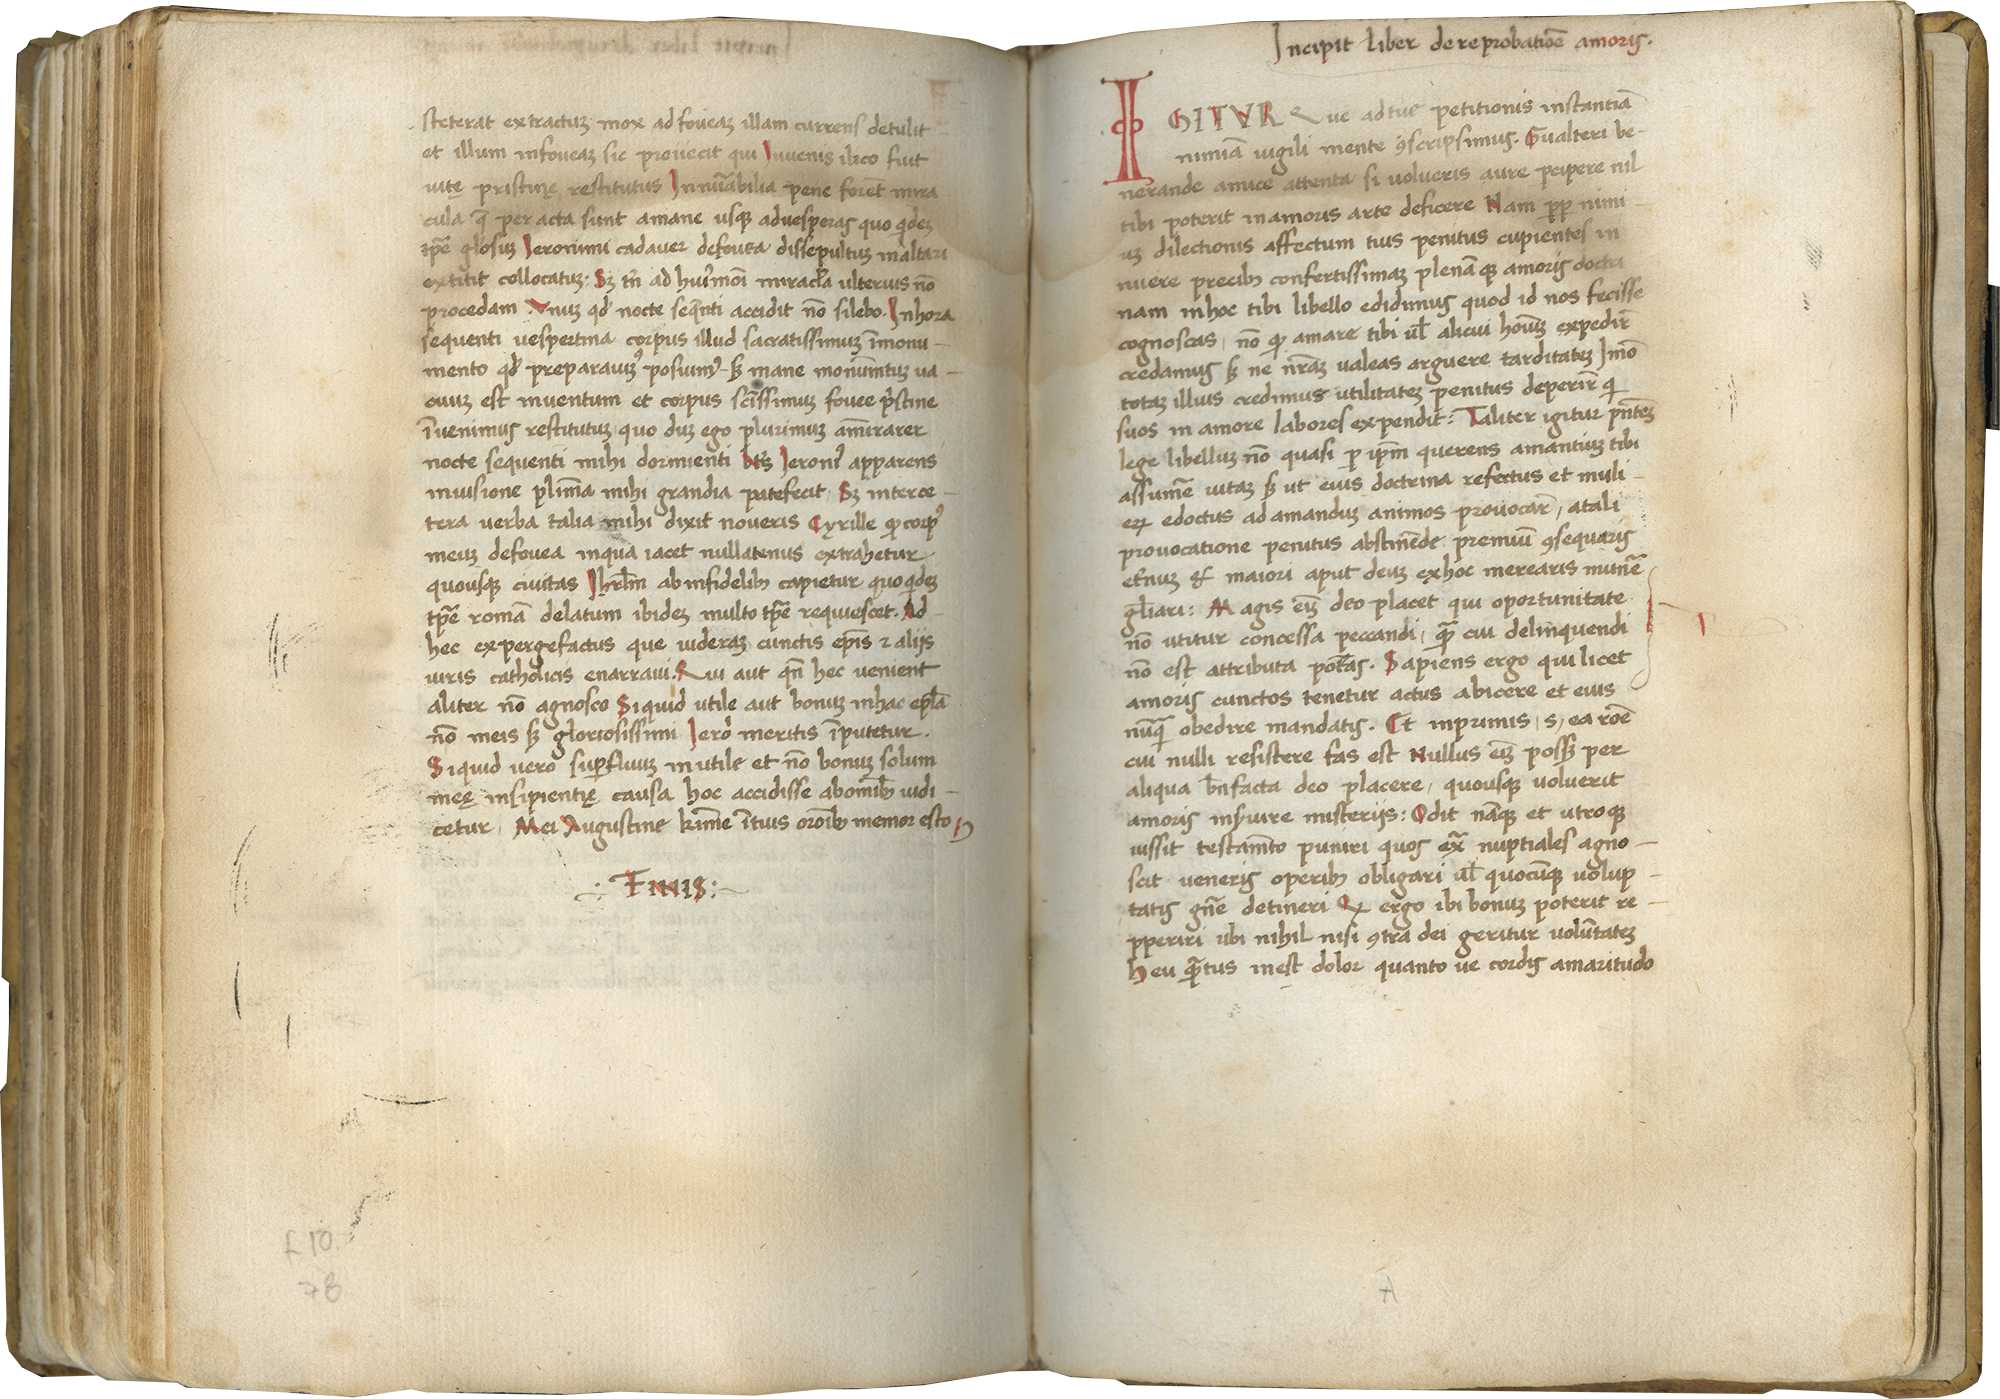 steterat extractuꝫ mox ad foveaꝫ illam currens detulit
et illum in foveaꝫ sic proiecit qui Iuvenis ilico fuit
vitę pristinę restitutus In nūabilia pene forēt mira
cula q̄ per acta sunt a mane usqꝫ ad vesperas quo qideꝫ
tp̄e glosuꝫ Ieronimi cadaver de fovea dissepultuꝫ in altari
extitit collocatuꝫ: Sꝫ tn̄ ad hui9mōi miracl̄a ulterius nō
procedam Vnuꝫ qd' nocte seq̄nti accidit nō silebo. In hora
sequenti vespertina corpus illud sacratissimuꝫ ī monu-
mento qd' preparavim9 posuim9 - sꝫ mane monumt̄uꝫ va-
cuuꝫ est inventum et corpus scīssimum fovee p'stine
īvenimus restitutuꝫ, quo duꝫ ego plurimuꝫ am̄irarer
nocte sequenti mihi dormienti bt̄s Ieroni9 apparens
in visione plīma mihi grandia patefecit, Sꝫ inter ce-
tera verba talia mihi dixit noveris Cyrille qꝫ corp9
meuꝫ de fovea in qua iacet nullatenus extrahetur
quousqꝫ civitas Ihrl̄m ab infidelibꝫ capietur quo qideꝫ
tp̄e romā delatum ibideꝫ multo tp̄e requiescet. Ad-
hec expergefactus que videraꝫ cunctis ep̄is ⁊ aliis
viris catholicis enarravi. Qui aut qn̄ hec venient
aliter nō agnosco Si quid utile aut bonuꝫ in hac epl̄a
nō meis sꝫ gloriosissimi Iero' meritis īputetur.
Si quid vero sup̄fluuꝫ inutile et nō bonuꝫ solum
meę insipientię causa hoc accidisse ab omībꝫ iudi-
cetur, Mei Augustine kr̄ime ī tuis orōībꝫ memor esto
∴ FINIS :~
f 107
78
Incipit liber de reprobatiōe amoris.
IGITVR Que ad tue petitionis instantiā
nimiā vigili mente ꝯscripsimus. Gualteri ve-
nerande amice attenta si volueris aure pcipere nil
tibi poterit in amoris arte deficere Nam pp nimi-
uꝫ dilectionis affectum tuis penitus cupientes in
nuere precibꝫ confertissimaꝫ plenāqꝫ amoris doctri
nam in hoc tibi libello edidimus quod id nos fecisse
cognoscas, nō qꝫ amare tibi vl' alicui hoīuꝫ expedir̄
credamus sꝫ ne nr̄aꝫ valeas arguere tarditateꝫ Imō
totaꝫ illius credimus utilitateꝫ penitus deperir̄ qi
suos in amore labores expendit: Taliter igitur pn̄teꝫ
lege libelluꝫ nō quasi p ip̄m querens amantiuꝫ tibi
assumē̄ vitaꝫ sꝫ ut eius doctrina refectus et muli-
eꝝ edoctus ad amanduꝫ animos provocar̄, a tali
provocatione penitus abstinēdo premiuꝫ ꝯsequaris
etn̄uꝫ ⁊ maiori aput deuꝫ ex hoc merearis mun̄e
gl̄iari: Magis eīꝫ deo placet qui oportunitate
nō utitur concessa peccandi, q̄ꝫ cui delinquendi
nō est attributa pot̄as. Sapiens ergo qui licet
amoris cunctos tenetur actus abicere et eius
nūq̄ꝫ obedire mandatis. Et inprimis, s, ea roē
cui nulli resistere fas est Nullus eīꝫ possꝫ per
aliqua bn̄facta deo placere, quousqꝫ voluerit
amoris inservire misteriis: Odit nāqꝫ et utroqꝫ
iussit testam̄to puniri quos ex̄ nuptiales agno-
scit veneris operibꝫ obligari vl' quocūqꝫ volup-
tatis gn̄e detineri Qꝫ ergo ibi bonuꝫ poterit re-
pperiri ubi nihil nisi ꝯtra dei geritur volūtateꝫ
Heu q̄tus inest dolor quanto ve cordis amaritudo